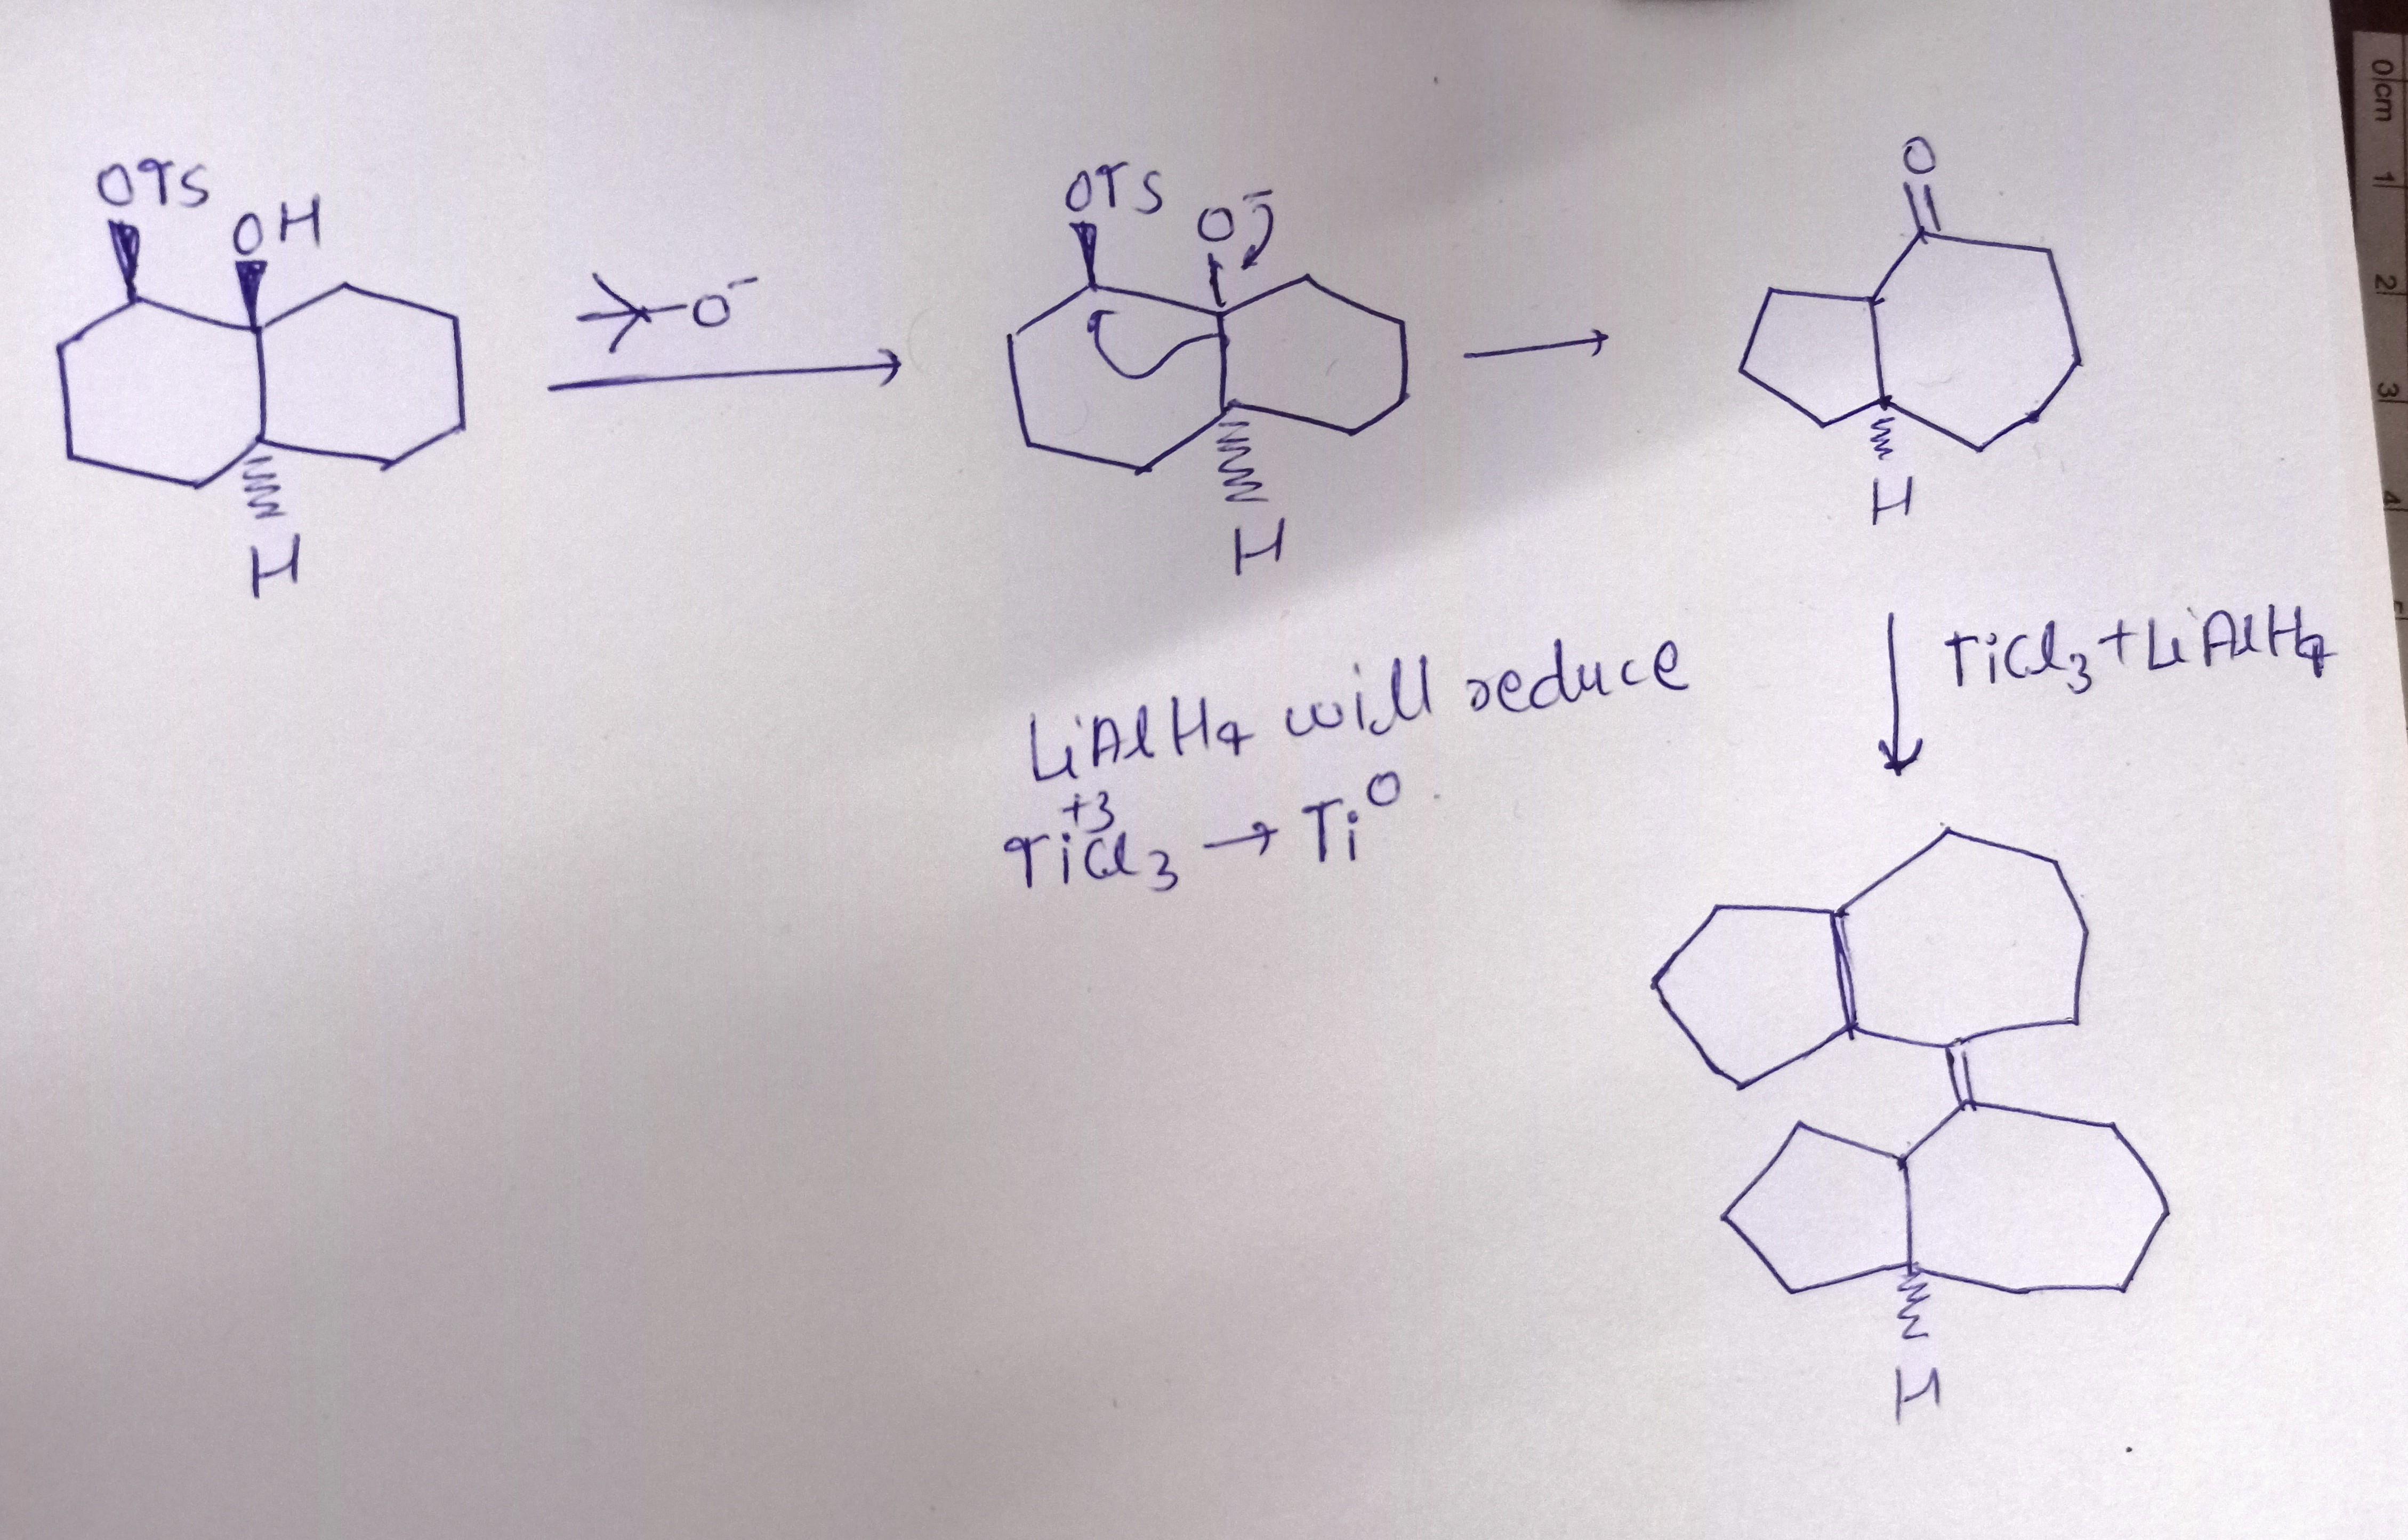 OTS
OH
H
O⁻
OTS
O⁻
H
O
H
TiCl₃ + LiAlH₄
LiAlH₄ will reduce
+3
TiCl₃ → Ti⁰
H
0 cm
1
2
3
4